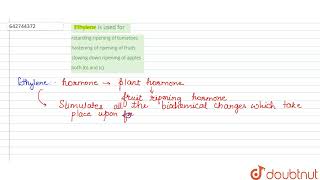 642744372
Ethylene is used for
retarding ripening of tomatoes
hastening of ripening of fruits
slowing down ripening of apples
both (b) and (c)
Ethylene - hormone → plant hormone
fruit ripening hormone
Stimulates all the biochemical changes which take
place upon fr
doubtnut